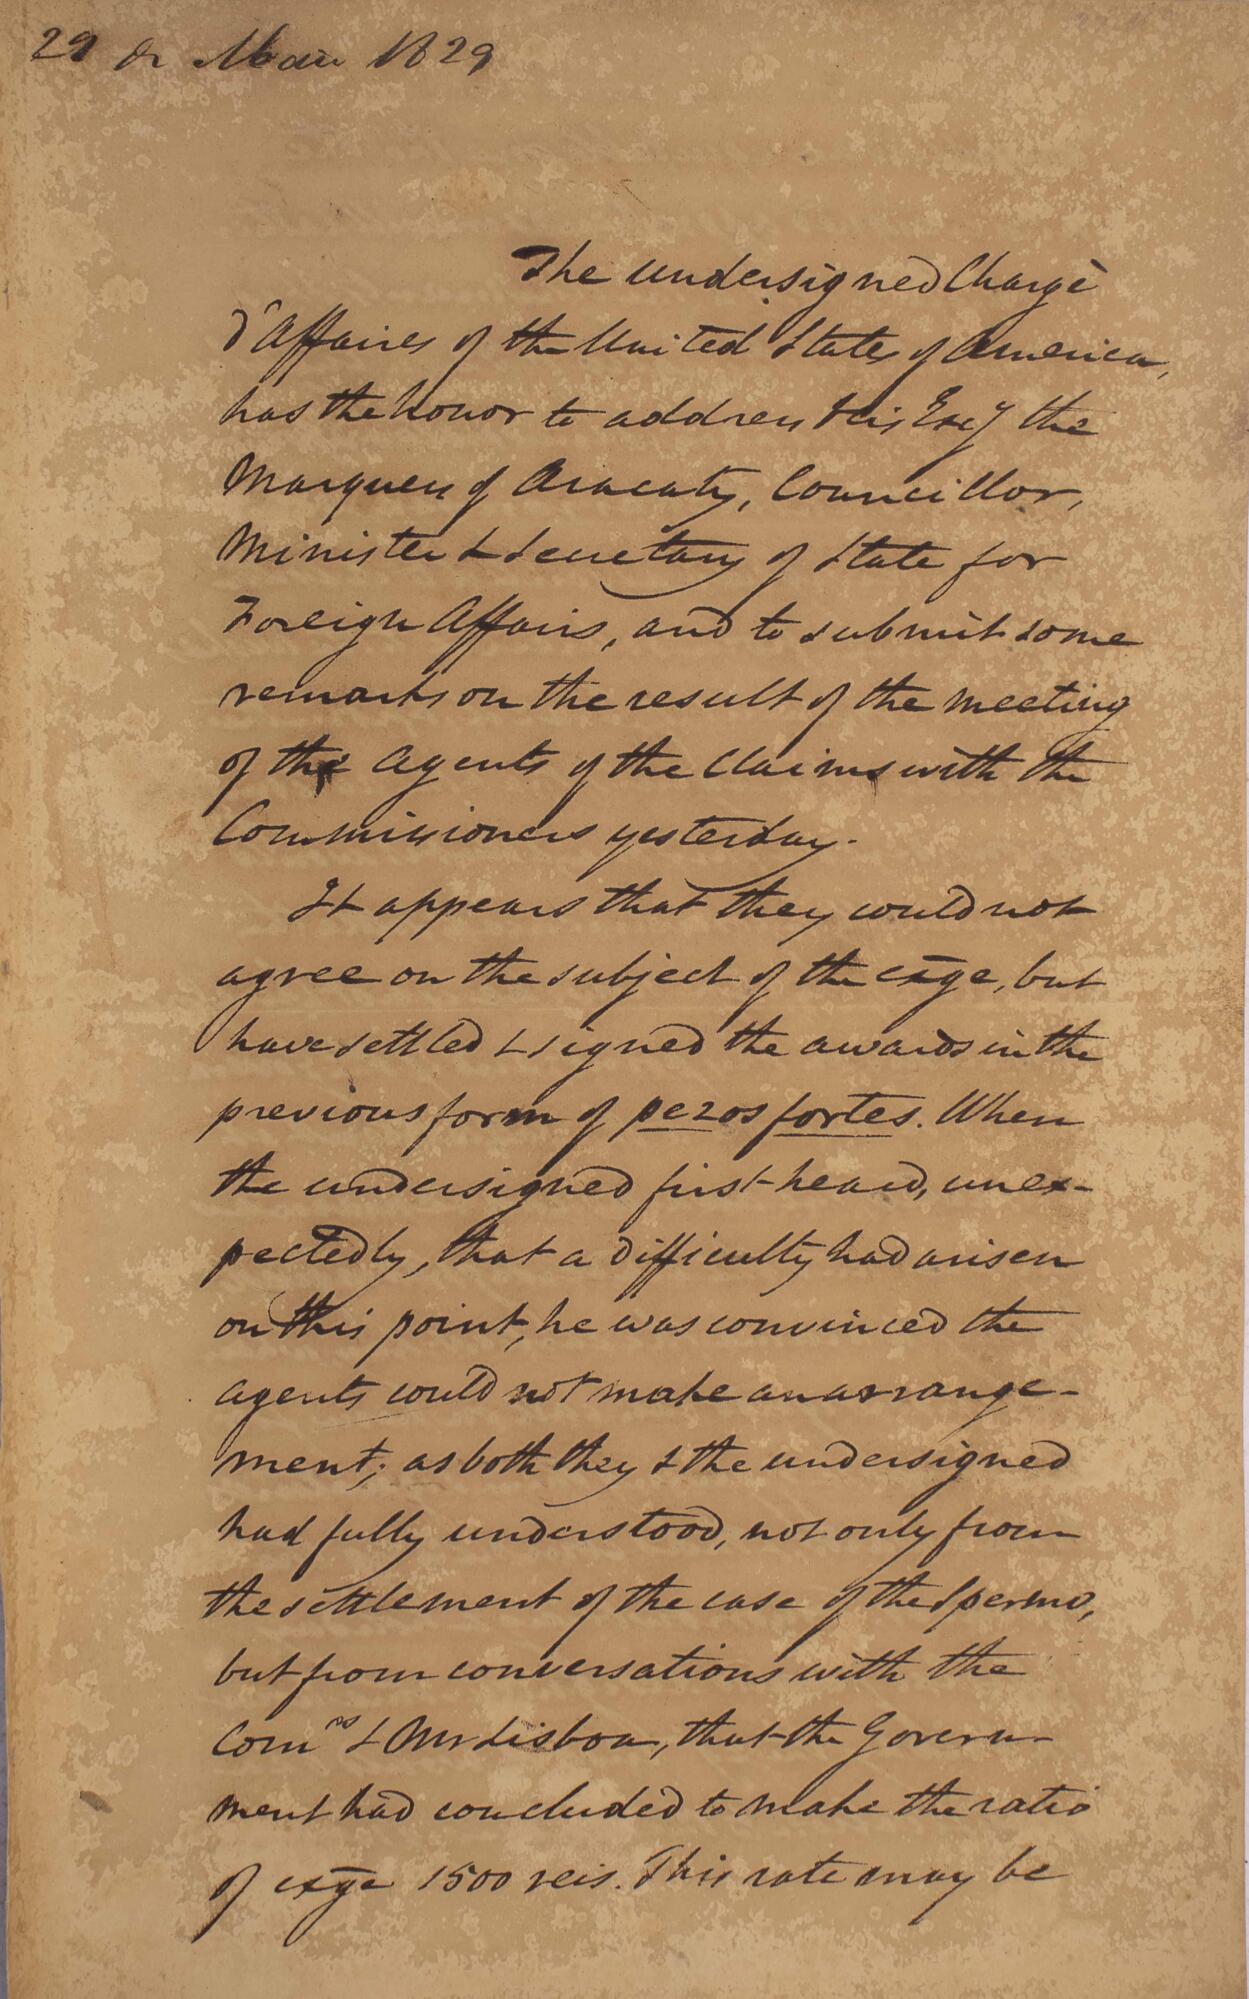 29 de Maio 1829
The undersigned Chargé
d'Affaires of the United States of America,
has the honor to address His Excy the
Marquess of Aracaty, Councillor,
Minister & Secretary of State for
Foreign Affairs, and to submit some
remarks on the result of the meeting
of the Agents of the Claims with the
Commissioners yesterday.
It appears that they could not
agree on the subject of the exge, but
have settled & signed the awards in the
previous form of pezos fortes. When
the undersigned first heard, unex-
pectedly, that a difficulty had arisen
on this point, he was convinced the
agents could not make an arrange-
ment; as both they & the undersigned
had fully understood, not only from
the settlement of the case of the Spermo,
but from conversations with the
Comrs & Mr Lisboa, that the Govern-
ment had concluded to make the ratio
of exge 1500 reis. This rate may be